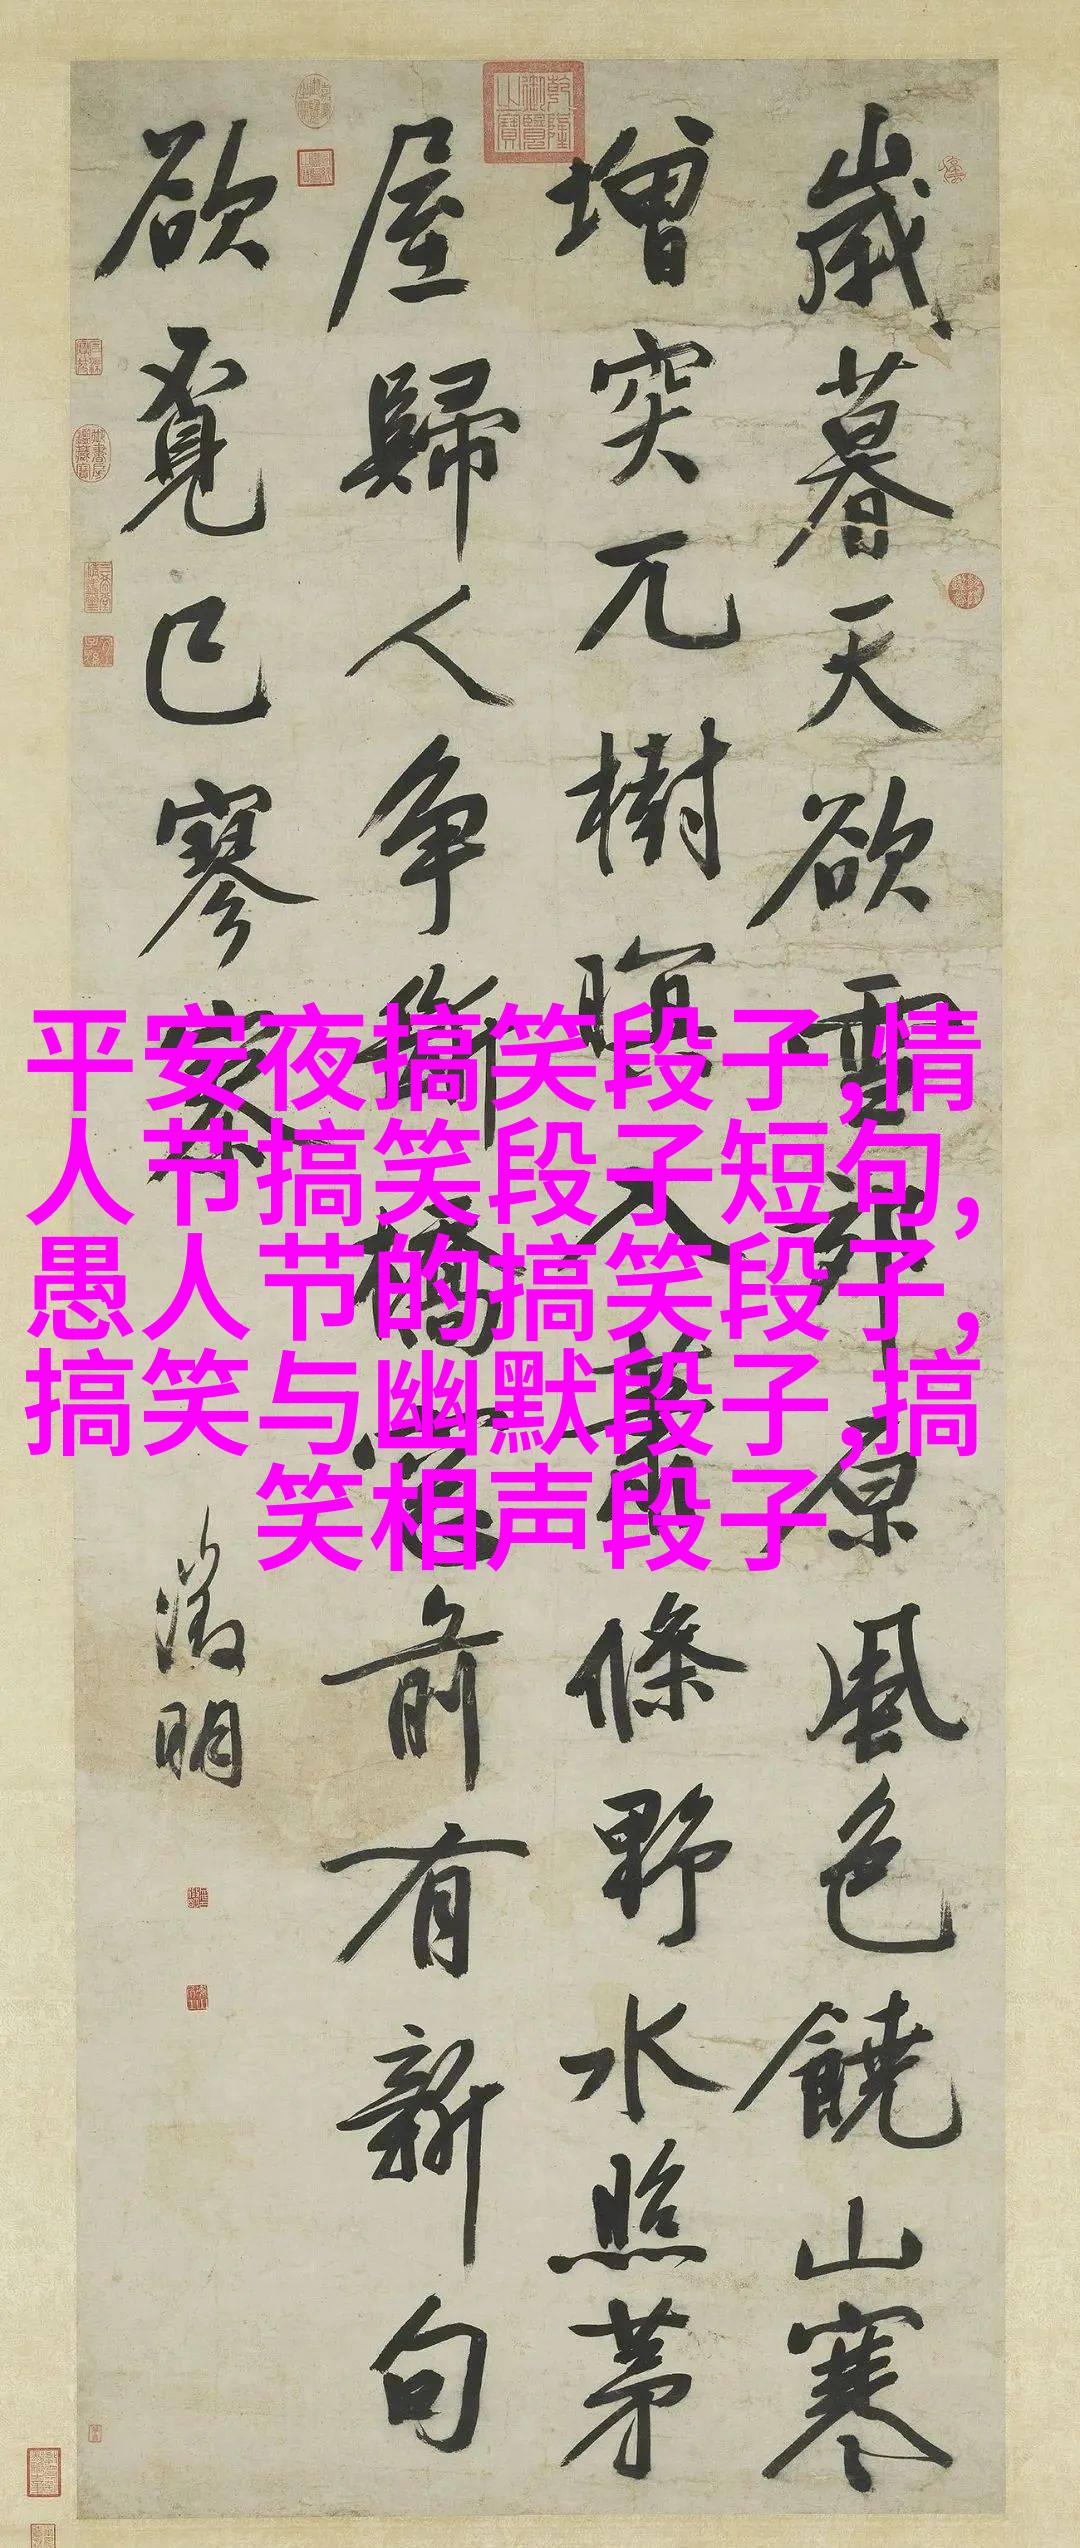 乾隆御覽之寶
歲暮天欲雪郊原風色饒山寒
增突兀樹暝入蕭條野水照茅
屋歸人爭橋窓前有新句
欲覓已寥寥
徵明
平安夜搞笑段子,情
人节搞笑段子短句,
愚人节的搞笑段子,
搞笑与幽默段子,搞
笑相声段子